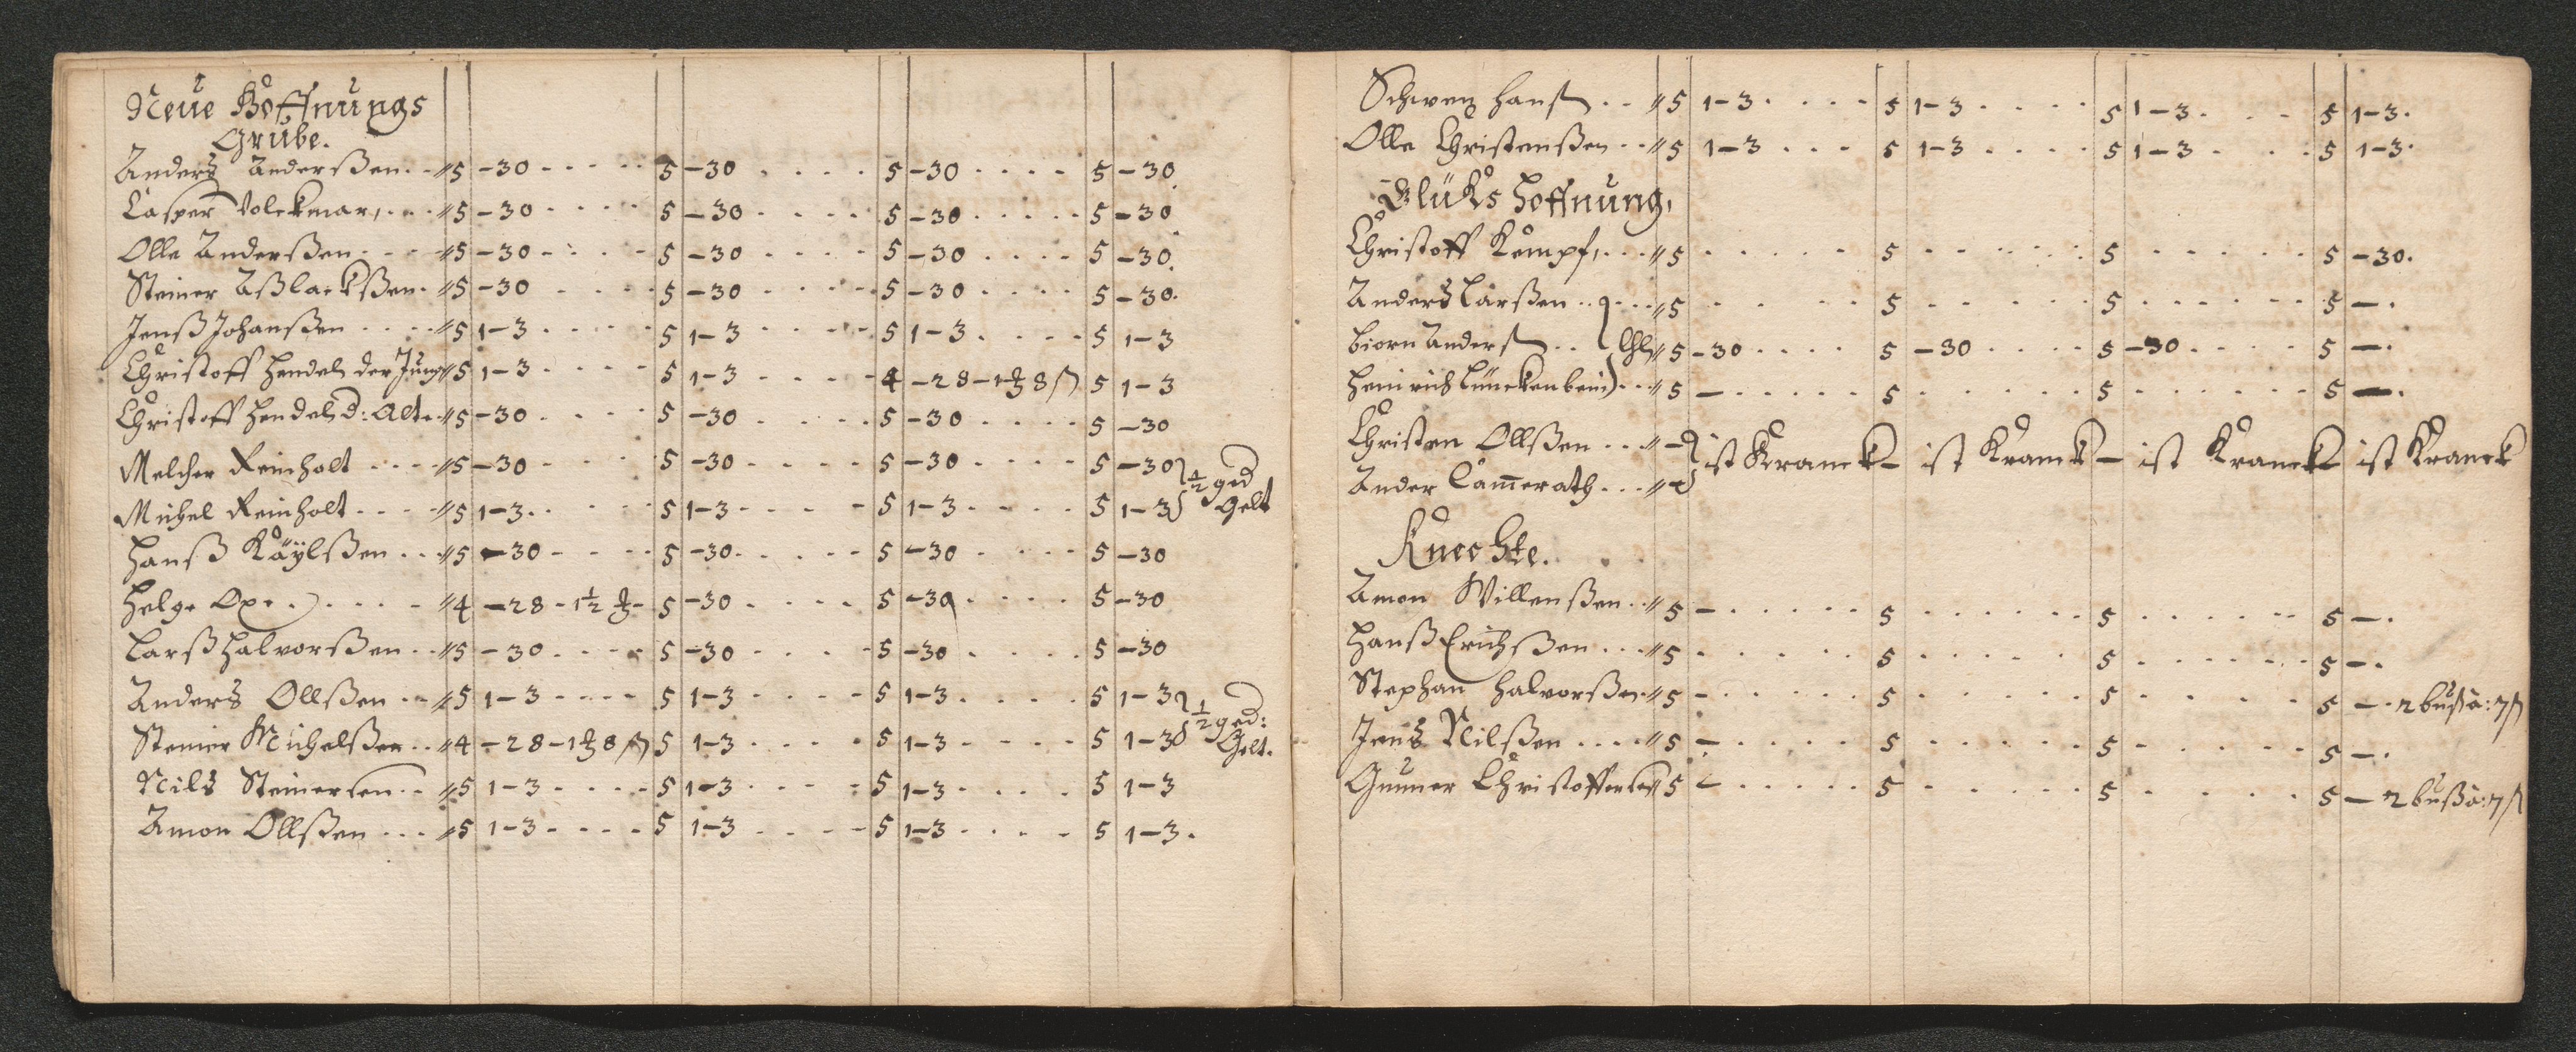 Neue Hoffnungs
Grube.
Anders Anderßen. . // 5 - 30 - - - - - 5 - 30 . . . . 5 - 30 . . . . 5 - 30.
Casper Volckmar, . . . // 5 - 30 . . . . 5 - 30 . . . . 5 - 30 . . . . . 5 - 30
Olle Anderßen . . . // 5 - 30 - . . . 5 - 30 . . . . 5 - 30 . . . . 5 - 30.
Steiner Aßlackßen. // 5 - 30 . . . . 5 - 30 . . . . 5 - 30 . . . . 5 - 30.
Jenß Johanßen . . . . // 5 1 - 3 . . . . 5 1 - 3 . . . . 5 1 - 3 . . . . 5 1 - 3
Christoff Hendel der Jung // 5 1 - 3 . . . . 5 1 - 3 . . . . 4 - 28 - 1 8 ß 5 1 - 3
Christoff Hendel d: Alte // 5 - 30 . . . . 5 - 30 . . . . 5 - 30 . . . . 5 - 30
Melcher Reinholt . . . . // 5 - 30 - . . . 5 - 30 . . . . 5 - 30 . . . . 5 - 30 } 1/2 ged
Michel Reinholt . . . . // 5 1 - 3 . . . . 5 1 - 3 - . . - 5 1 - 3 . . . . 5 1 - 3 } Gelt
Hanß Käÿlßen . . // 5 - 30 - . . . 5 - 30 . . . . 5 - 30 . . . . 5 - 30
Helge . . . . // 4 - 28 - 1 1/2 - 5 - 30 . . . . 5 - 30 . . . . 5 - 30
Larß Halvorßen . . // 5 - 30 . . . . 5 - 30 . . . . 5 - 30 . . . . 5 - 30
Anders Ollßen . . // 5 1 - 3 . . . . 5 1 - 3 . . . . 5 1 - 3 . . . . 5 1 - 3 } 1/2 ged:
Steiner Michelßen . . // 4 - 28 - 1 8 ß 5 1 - 3 . . . . 5 1 - 3 . . . . 5 1 - 3 } Gelt.
Nils Steinersen . . // 5 1 - 3 . . . . 5 1 - 3 . . . . 5 1 - 3 . . . . 5 1 - 3
Amon Ollßen . . . // 5 1 - 3 . . . . 5 1 - 3 . . . . 5 1 - 3 . . . . 5 1 - 3.
Schwen Hanß . . // 5 1 - 3 . . . . 5 1 - 3 . . . . 5 1 - 3 . . . . 5 1 - 3.
Olle Christenßen . . // 5 1 - 3 . . . . 5 1 - 3 . . . . 5 1 - 3 . . . . 5 1 - 3.
Glüks Hoffnung,
Christoff Kempf, . . . // 5 . . . . . 5 . . . . . 5 . . . . . 5 - 30.
Anders Larßen . . } . . . // 5 . . . . . 5 . . . . . 5 . . . . . 5 - .
Biorn Anderß . . } // 5 - 30 . . . . 5 - 30 . . . . 5 - 30 . . . . 5 - .
Heinrich Lünckenbein) . . // 5 - . . . . . 5 . . . . . 5 . . . . . 5 - .
Christen Ollßen . . . // - } ist Kranck - ist Kranck - ist Kranck - ist Kranck
Ander Cam̄erath . . . // - }
Knechte.
Amon Willenßen . . // 5 - . . . . . 5 . . . . . 5 . . . . . 5 - .
Hanß Erichßen . . . // 5 . . . . . 5 . . . . . 5 . . . . . 5 - .
Stephan Halvorßen // 5 - . . . . . 5 . . . . . 5 . . . . . 5 - . 2 buß â: 7 ß
Jens Nilßen . . . . // 5 - . . . . . 5 . . . . . 5 . . . . . 5 - .
Gunner Christoffersen // 5 - . . . . . 5 . . . . . 5 . . . . . 5 - 2 buß â: 7 ß